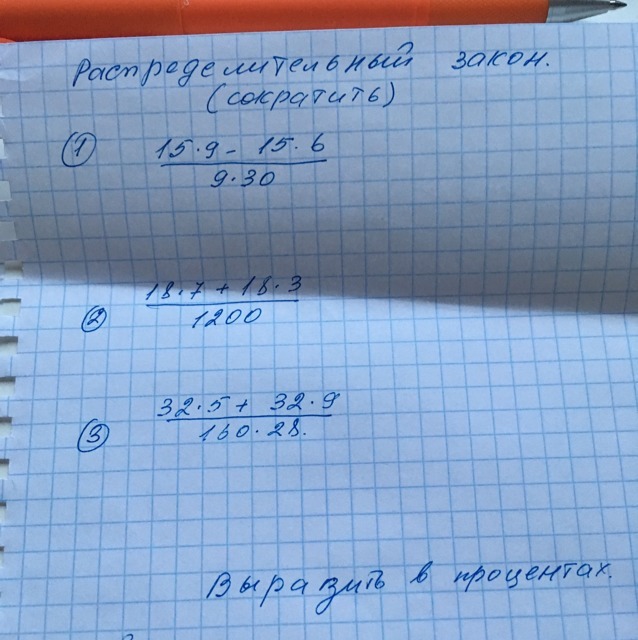 Распределительный закон.
(сократить)
① 15·9 - 15·6
9·30
② 18·7 + 18·3
1200
③ 32·5 + 32·9
160·28.
Выразить в процентах.